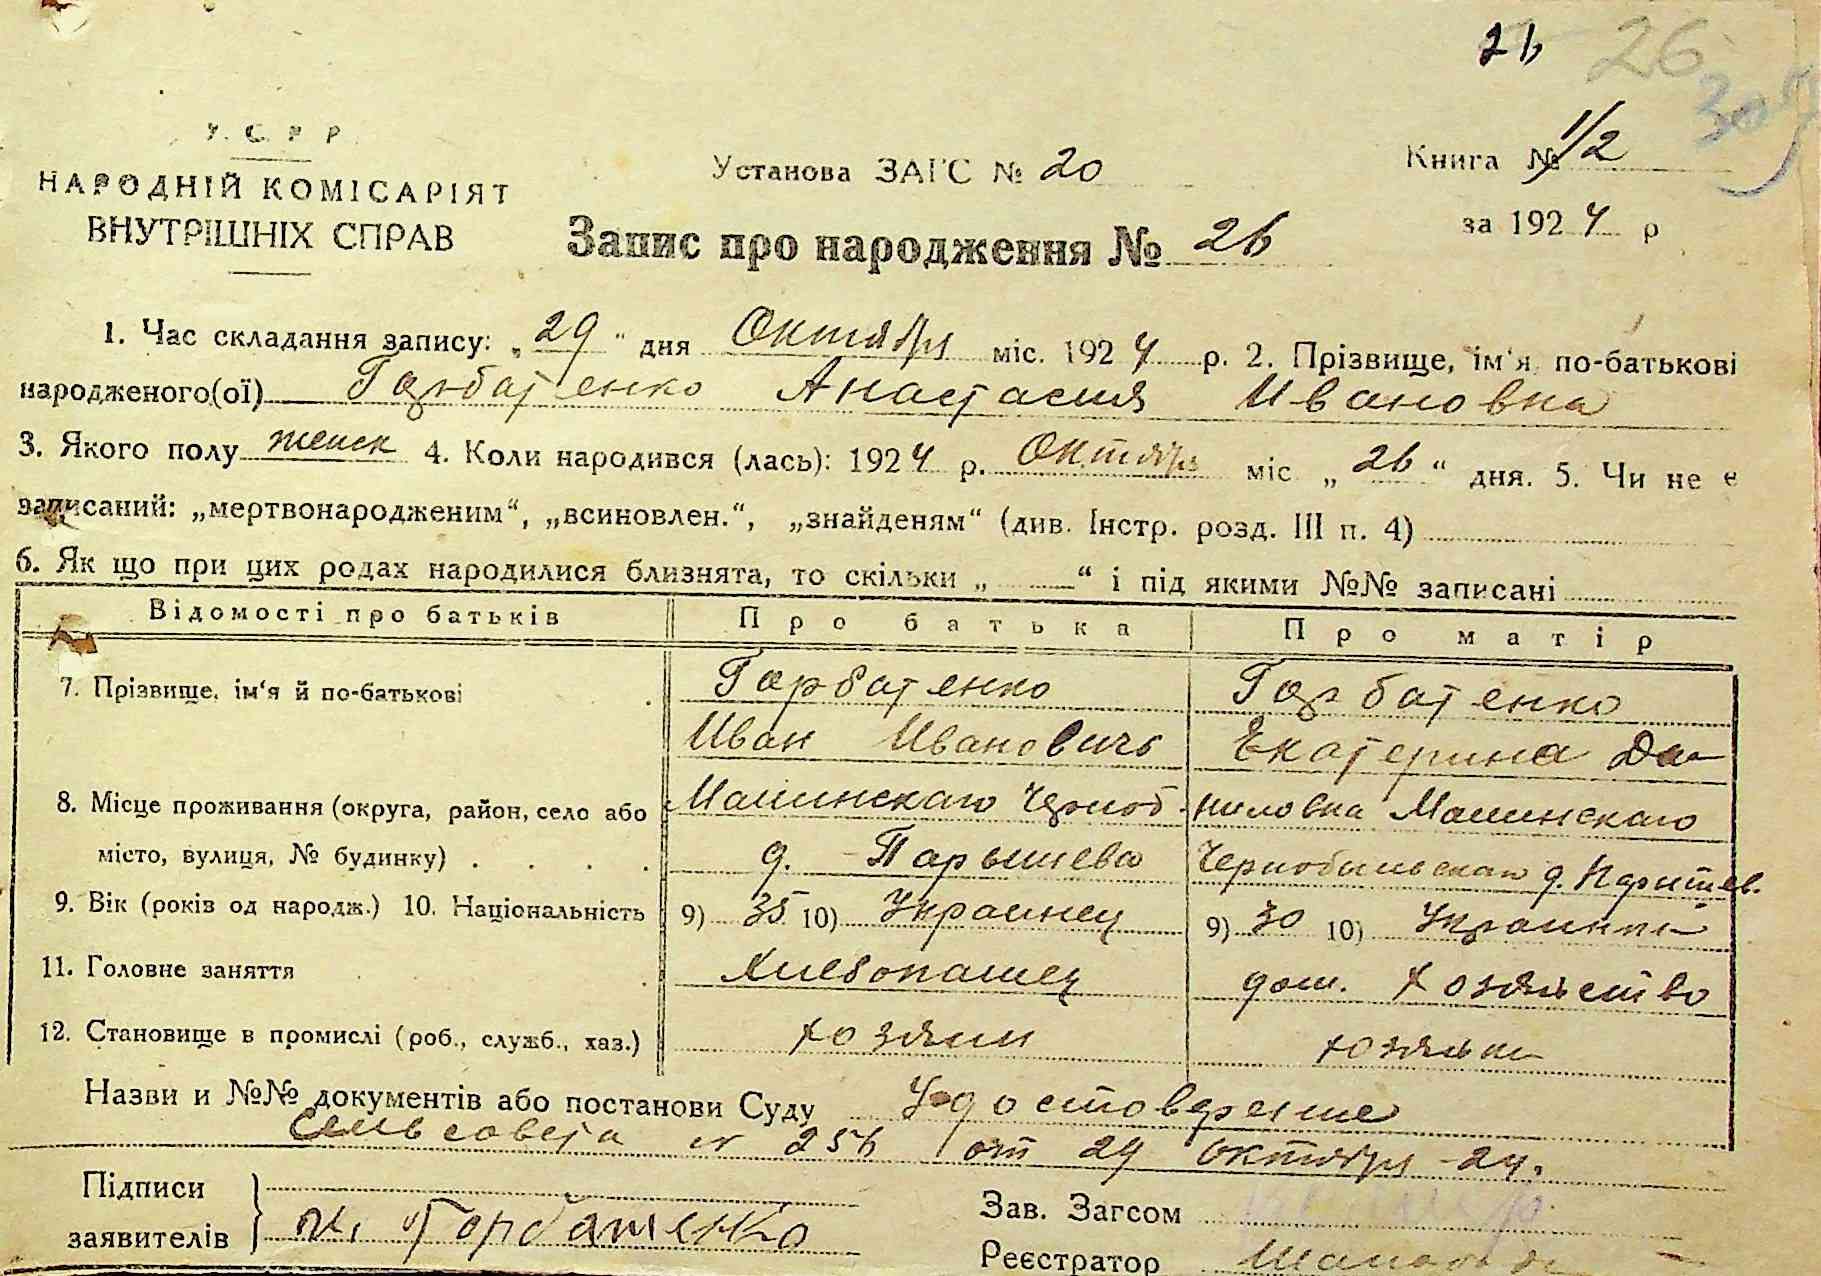 26 26
305
У. С. Р. Р.
НАРОДНІЙ КОМІСАРІЯТ
ВНУТРІШНІХ СПРАВ
Установа ЗАГС № 20
Книга № 1/2
за 1924 р
Запис про народження № 26
1. Час складання запису: „29“ дня Октября міс. 1924 р. 2. Прізвище, ім‘я, по-батькові
народженого(ої) Горбатенко Анастасия Ивановна
3. Якого полу женск 4. Коли народився (лась): 1924 р. Октября міс „26“ дня. 5. Чи не є
записаний: „мертвонародженим“, „всиновлен.“, „знайденям“ (див. Інстр. розд. III п. 4)
6. Як що при цих родах народилися близнята, то скільки „ “ і під якими №№ записані
Відомості про батьків Про батька Про матір
7. Прізвище, ім‘я й по-батькові Горбатенко Горбатенко
Иван Ивановичъ Екатерина Да-
8. Місце проживання (округа, район, село або Малинскаго Черноб. ниловна Малинскаго
місто, вулиця, № будинку) д. Парышева Чернобыльскаго д. Парышев.
9. Вік (років од народж.) 10. Національність 9) 35 10) Украинец 9) 30 10) Украинка
11. Головне заняття Хлебопашец дом. хозяйство
12. Становище в промислі (роб., служб., хаз.) хозяин хозяйка
Назви и №№ документів або постанови Суду Удостоверение
Сельсовета № 256 от 29 октября 24.
Підписи
заявителів И. Горбатенко
Зав. Загсом
Реєстратор